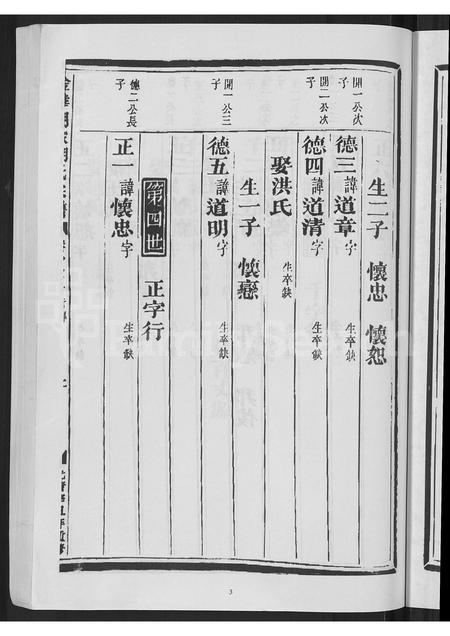 生二子 懷忠 懷恕
開一公次子
德三諱道章字 生卒缺
開二公次子
德四諱道清字 生卒缺
娶洪氏 生卒缺
生一子 懷戀
開一公三子
德五諱道明字 生卒缺
第四世 正字行
德二公長子
正一諱懷忠字 生卒缺
3